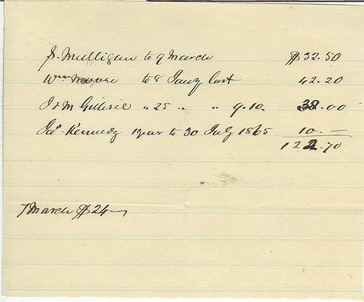 J. Mulligan to 9 March $32.50
Wm Moore to 8 Jany last 42.20
J & M Guthrie " 25 " " 9.10. 38.00
Jas Kennedy 1 year to 30 July 1865 10.—
122.70
7 March $24—